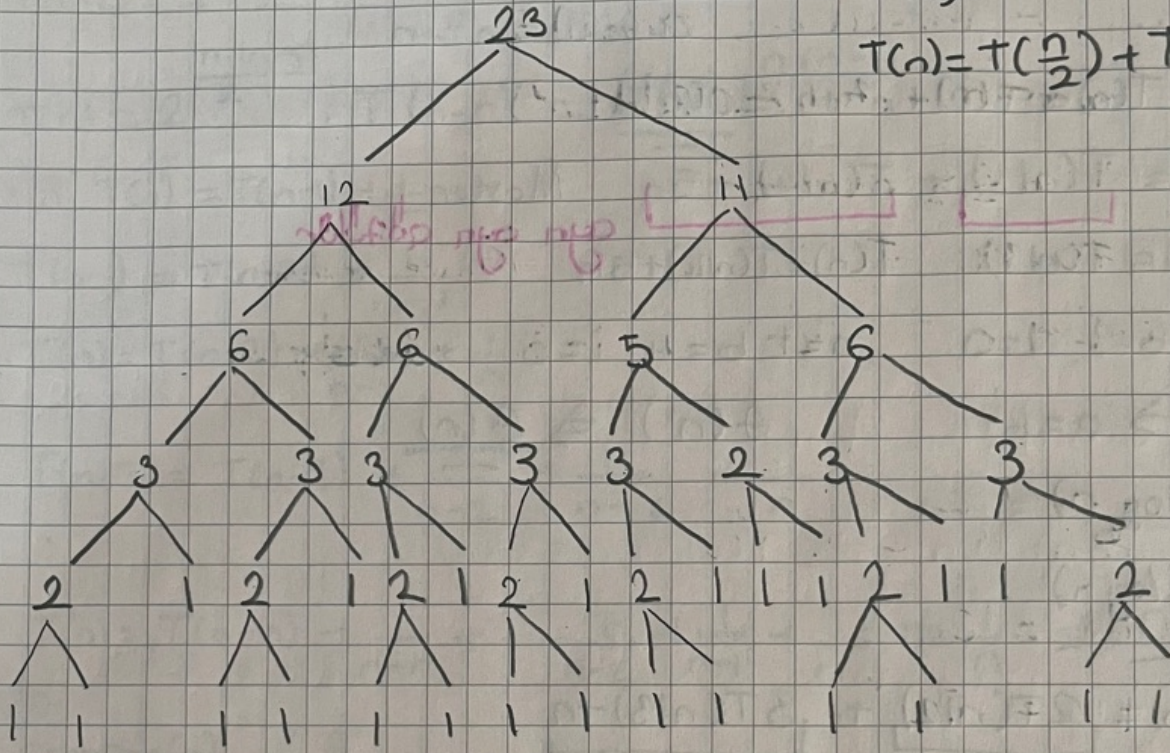 23
T(n)=T(n/2)+T
12 11
6 6 5 6
3 3 3 3 3 2 3 3
2 1 2 1 2 1 2 1 2 1 1 1 2 1 1 2
1 1 1 1 1 1 1 1 1 1 1 1 1 1